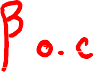 β o.c